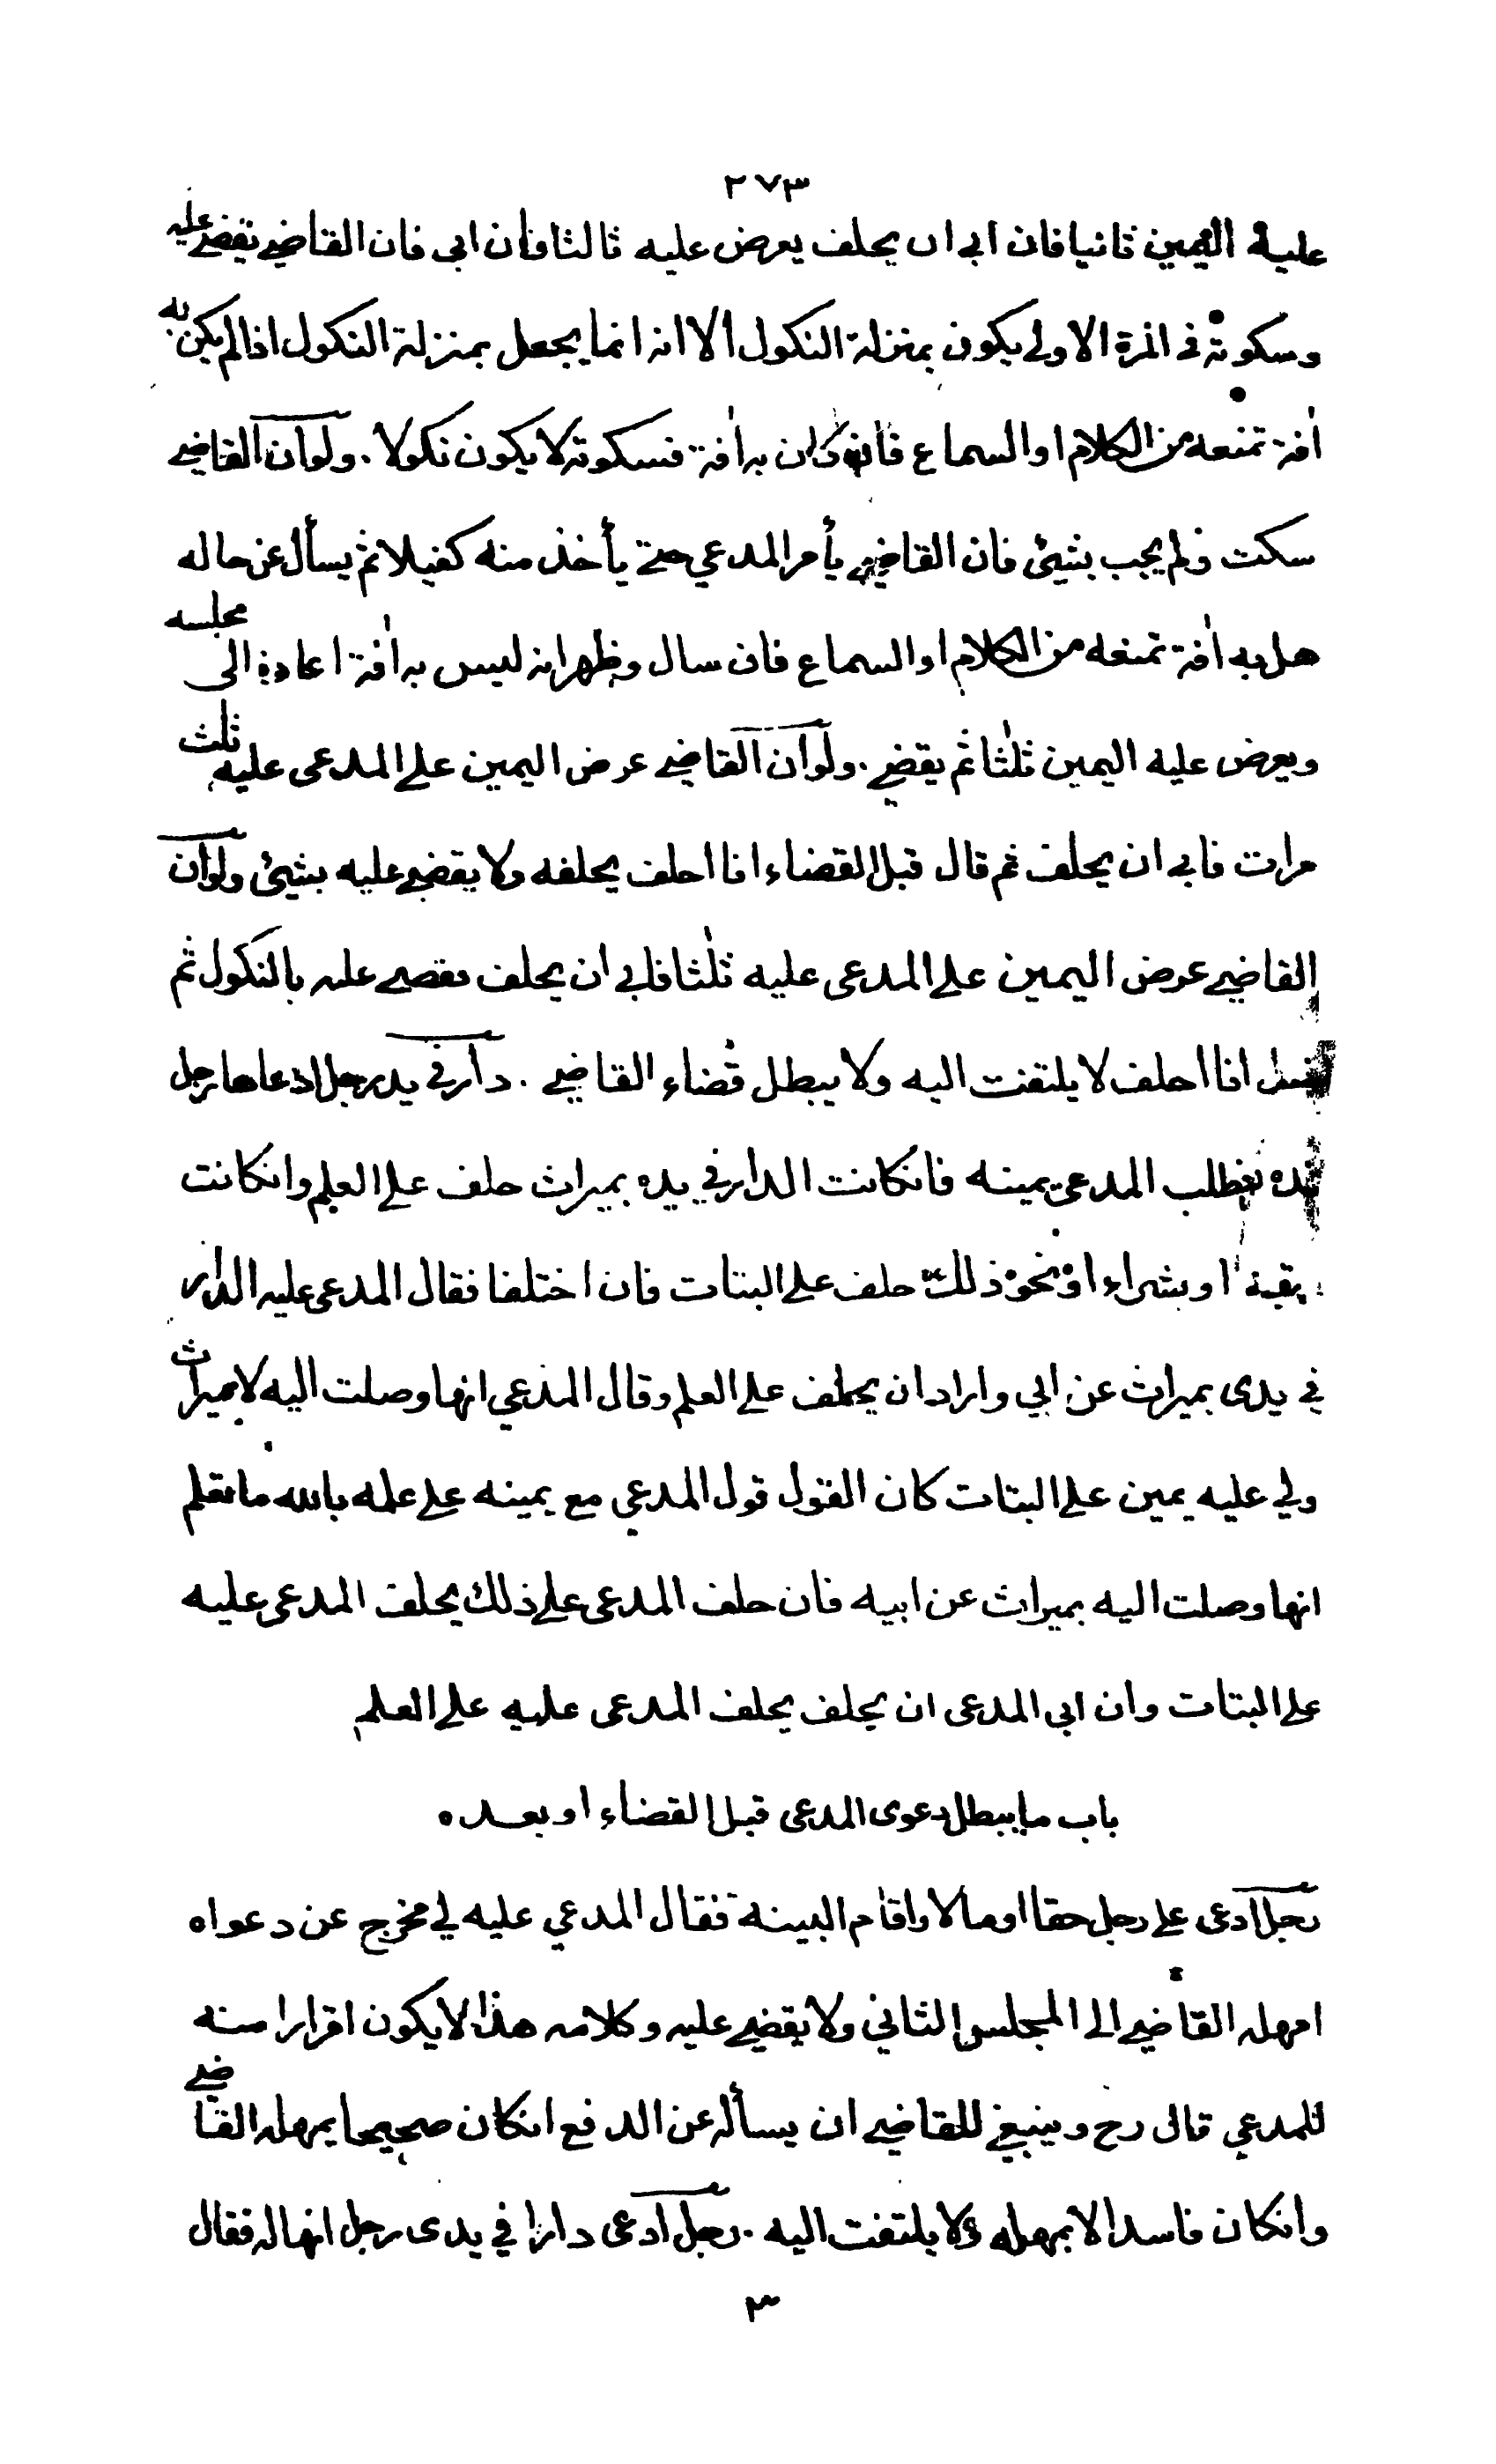 ٢٧٣
عليه اليمين ثانيا فان ابى ان يحلف يعرض عليه ثالثا فان ابى فان القاضي يقضي عليه
وسكوته في المرة الاولى يكون بمنزلة النكول الا انه انما يجعل بمنزلة النكول اذا لم يكن به
اٰفة تمنعه من الكلام او السماع فانه كان به اٰفة فسكوته لا يكون نكولا . ولو ان القاضي
سكت ولم يجب بشيئ فان القاضي يأمر المدعي حتى يأخذ منه كفيلا ثم يسأل عن حاله
هل به اٰفة تمنعه من الكلام او السماع فان سال وظهر انه ليس به اٰفة اعاده الى مجلسه
ويعرض عليه اليمين ثلٰثا ثم يقضي . ولو ان القاضي عرض اليمين على المدعى عليه ثلث
مرات فابى ان يحلف ثم قال قبل القضاء انا احلف يحلفه ولا يقضي عليه بشيئ ولو ان
القاضي عرض اليمين على المدعى عليه ثلٰثا فابى ان يحلف فقضى عليه بالنكول ثم
انا احلف لا يلتفت اليه ولا يبطل قضاء القاضي . دار في يد رجل ادعاها رجل
فطلب المدعي يمينه فانكانت الدار في يده بميراث حلف على العلم وانكانت
او بشراء او نحو ذلك حلف على البتات فان اختلفا فقال المدعى عليه الدار
في يدى بميراث عن ابي واراد ان يحلف على العلم وقال المدعي انها وصلت اليه لا بميراث
ولي عليه يمين على البتات كان القول قول المدعي مع يمينه على علمه بالله ما تعلم
انها وصلت اليه بميراث عن ابيه فان حلف المدعى على ذلك يحلف المدعى عليه
على البتات وان ابى المدعى ان يحلف يحلف المدعى عليه على العلم
باب ما يبطل دعوى المدعى قبل القضاء او بعده
رجل ادعى على رجل حقا او مالا واقام البينة فقال المدعي عليه لي مخرج عن دعواه
امهله القاضي الى المجلس الثاني ولا يقضي عليه وكلامه هذا لا يكون اقرارا منه
للمدعي قال رح وينبغي للقاضي ان يسأله عن الدفع انكان صحيحا يمهله القاضي
وانكان فاسدا لا يمهله ولا يلتفت اليه . رجل ادعى دارا في يدى رجل انها له فقال
٣